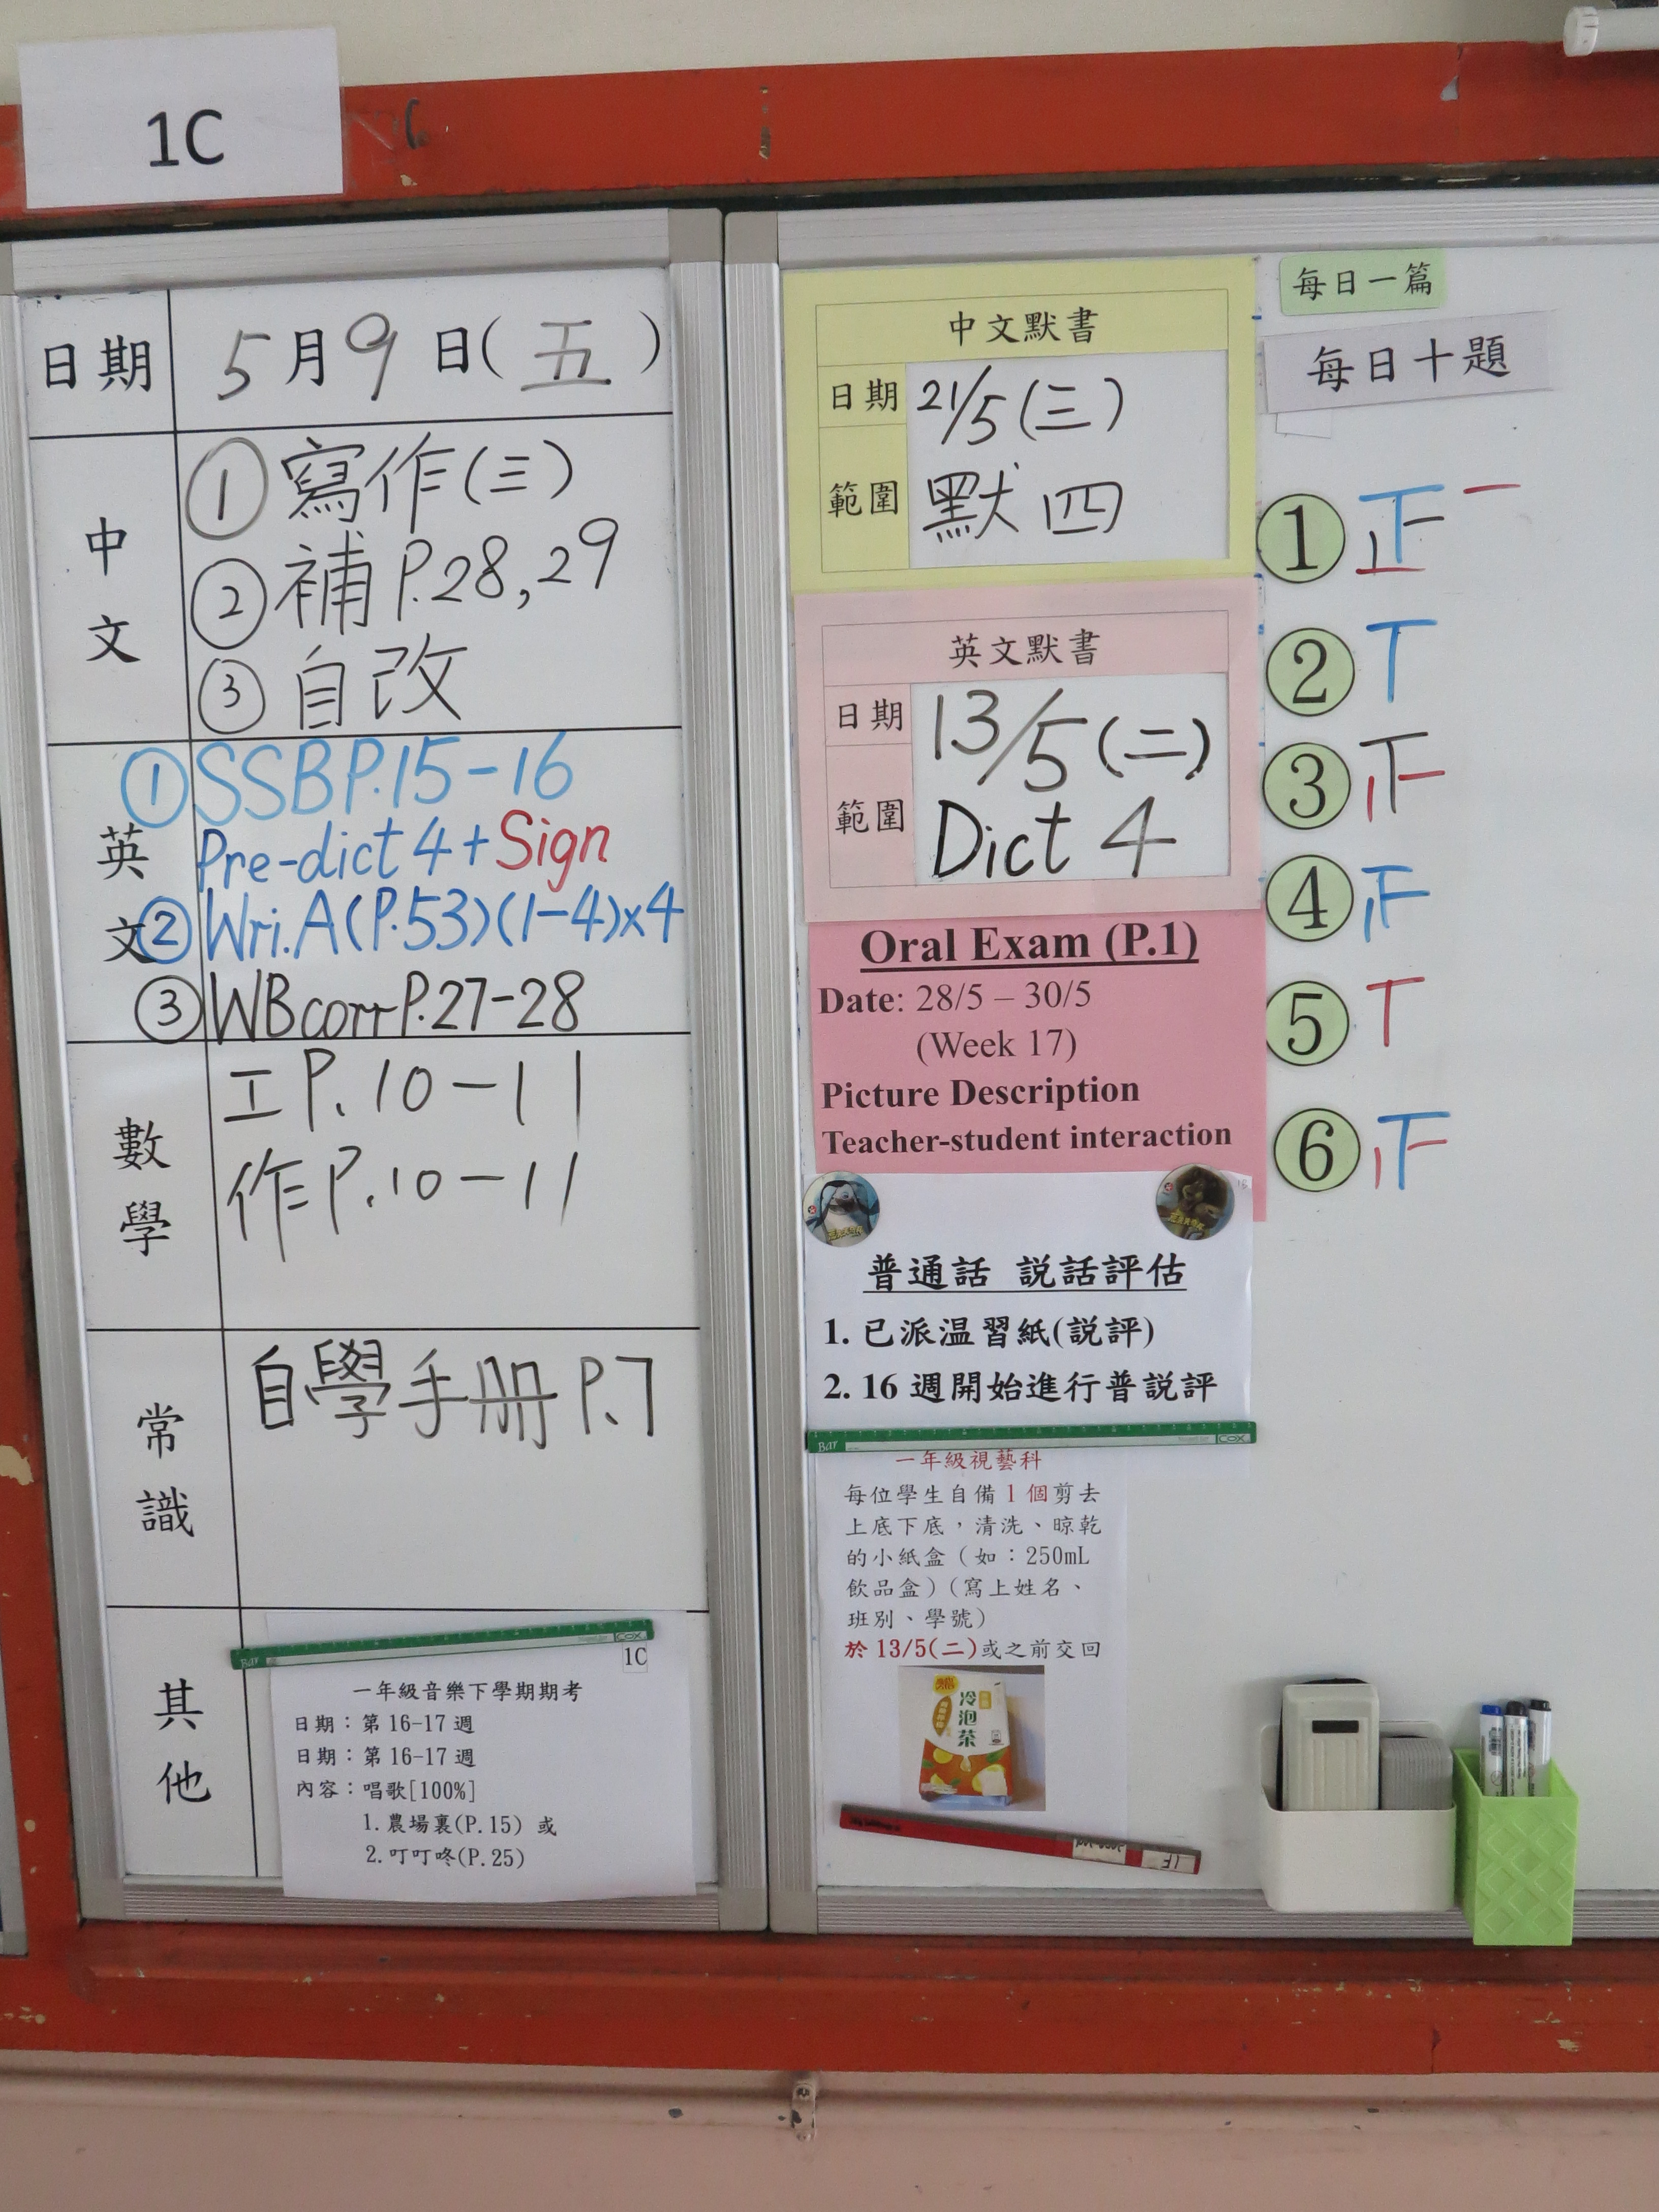 1C
日期 5月9日(五)
中文
① 寫作(三)
② 補 P.28,29
③ 自改
英文
① SSB P.15-16
Pre-dict 4 + Sign
② Wri.A (P.53)(1-4)x4
③ WB corr P.27-28
數學
工 P.10-11
作 P.10-11
常識
自學手册 P.7
其他
Bar
COX
1C
一年級音樂下學期期考
日期：第 16-17 週
日期：第 16-17 週
內容：唱歌[100%]
1.農場裏(P.15) 或
2.叮叮咚(P.25)
中文默書
日期 21/5(三)
範圍 默四
英文默書
日期 13/5(二)
範圍 Dict 4
Oral Exam (P.1)
Date: 28/5 – 30/5
(Week 17)
Picture Description
Teacher-student interaction
普通話 説話評估
1. 已派温習紙(説評)
2. 16 週開始進行普説評
Bar
COX
一年級視藝科
每位學生自備 1 個剪去
上底下底，清洗、晾乾
的小紙盒（如：250mL
飲品盒）(寫上姓名、
班別、學號)
於 13/5(二)或之前交回
冷泡茶
1F
每日一篇
每日十題
① 正一
②
③
④
⑤
⑥